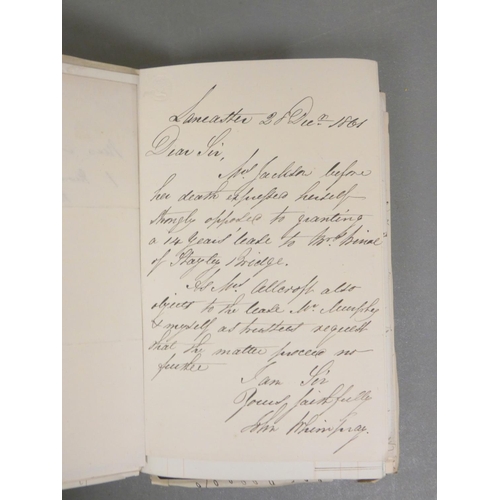 Lancaster 28 Decr. 1861
Dear Sir,
Mrs Jackson before
her death expressed herself
strongly opposed to granting
a 14 Years' lease to Mr
of Stayley Bridge.
As Mrs Allcroft also
objects to the lease Mr. Murphy
& myself as trustees request
that the matter proceed no
further
I am Sir
Yours faithfully
John Whimpray.